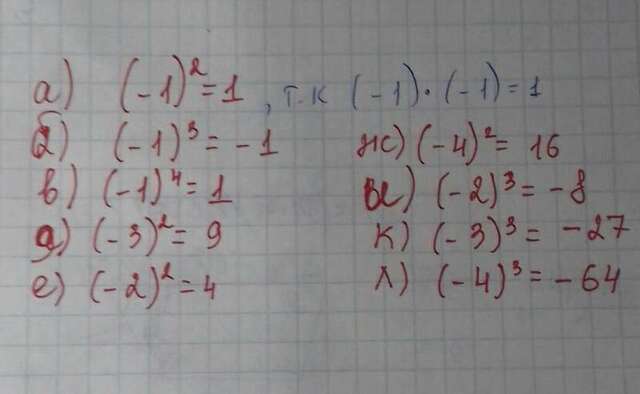 а) (-1)² = 1, т.к (-1)·(-1) = 1
б) (-1)³ = -1
в) (-1)⁴ = 1
д) (-3)² = 9
е) (-2)² = 4
ж) (-4)² = 16
и) (-2)³ = -8
к) (-3)³ = -27
л) (-4)³ = -64